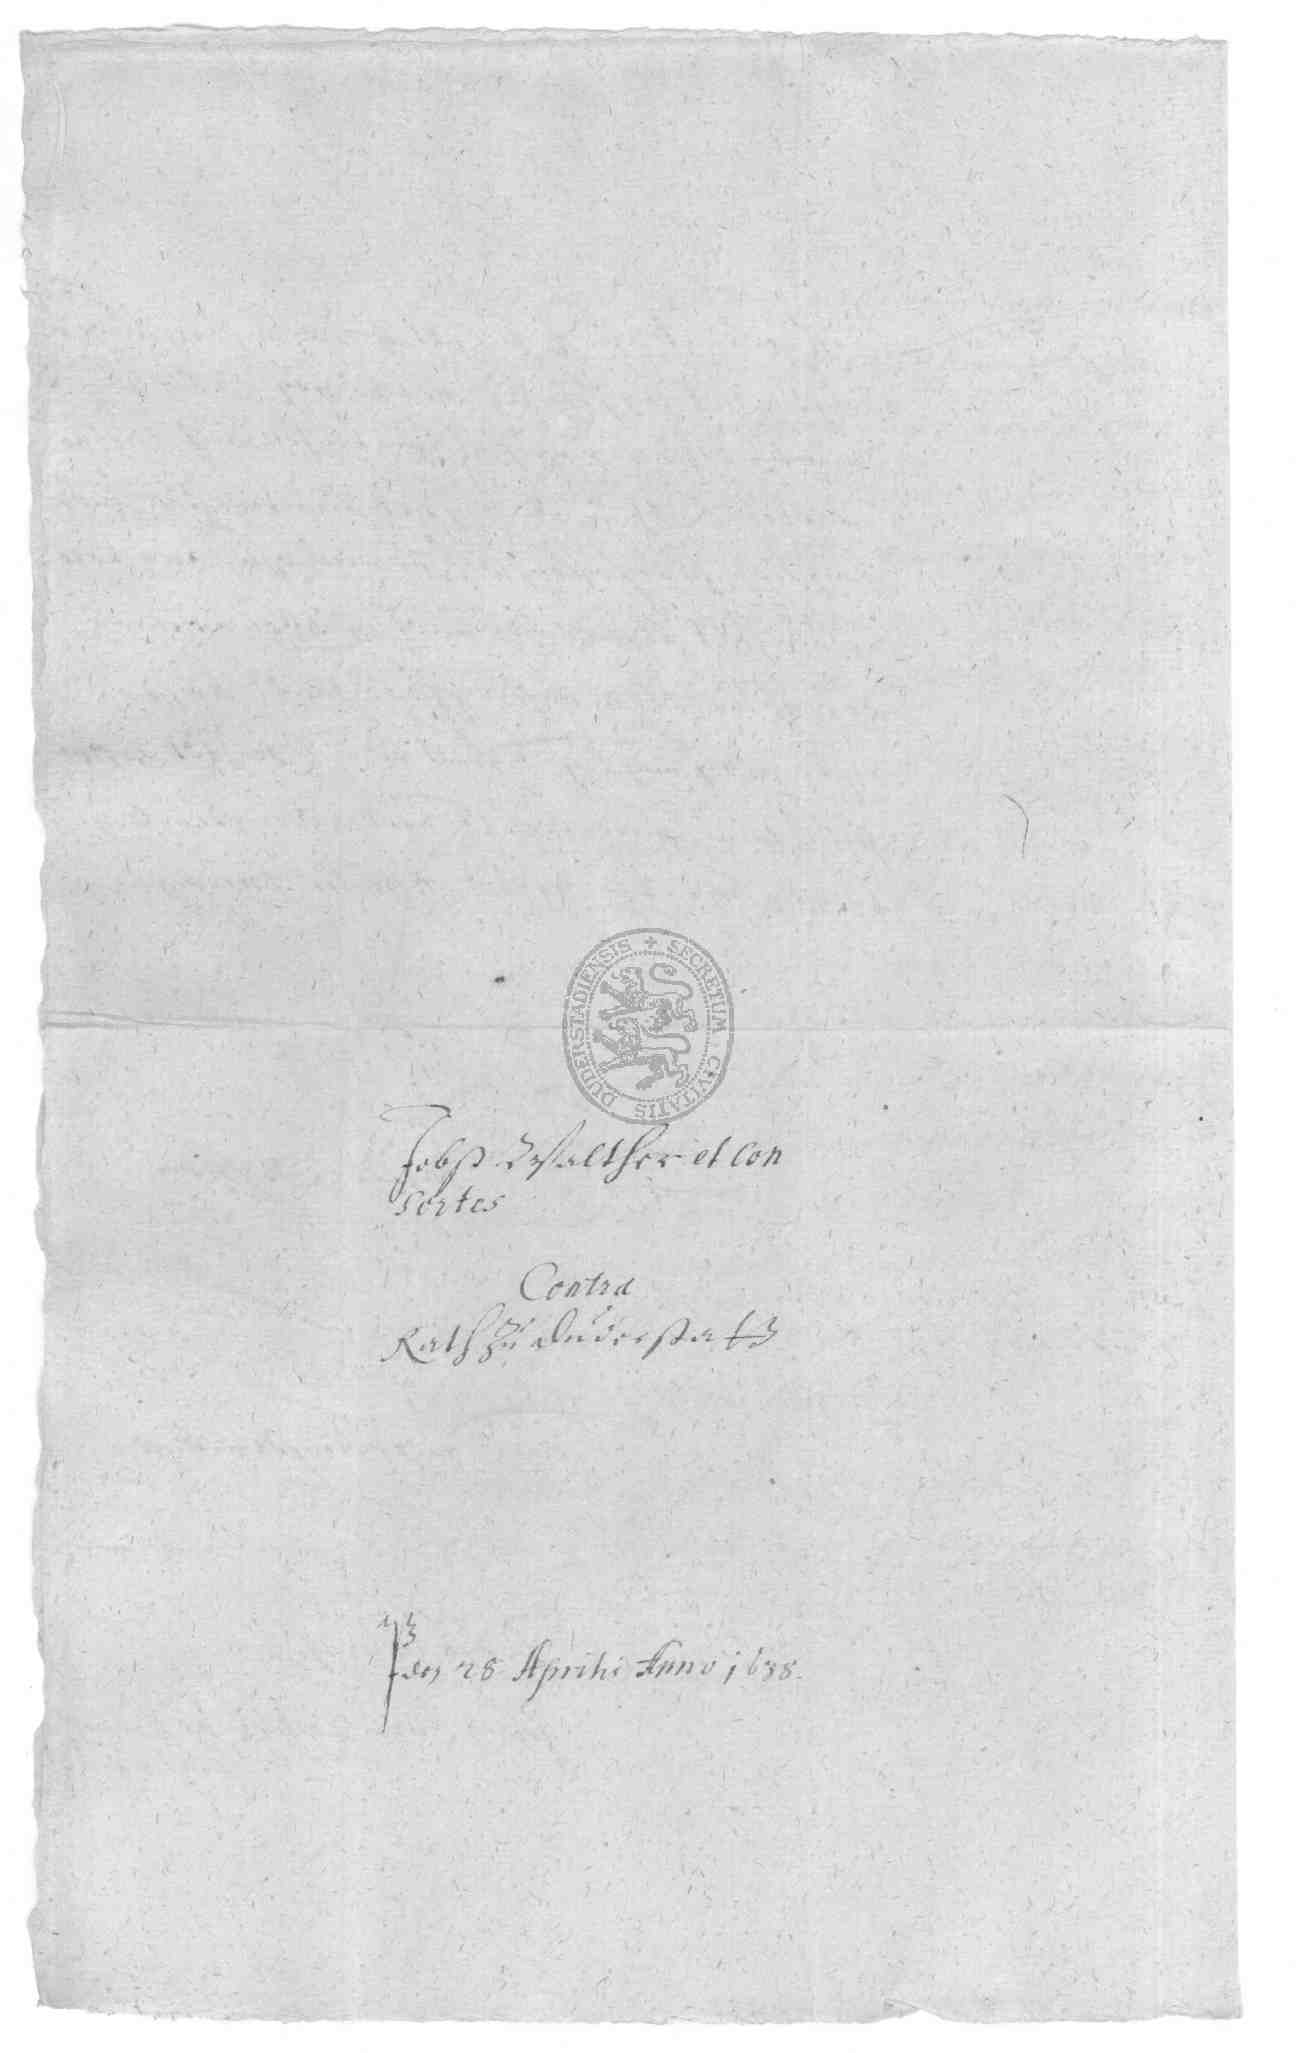 SECRETUM CIVITATIS DUDERSTADIENSIS
Jobst Walther et Con
sortes
Contra
Rath zu Duderstatt
den 28 Aprilis Anno 1638.